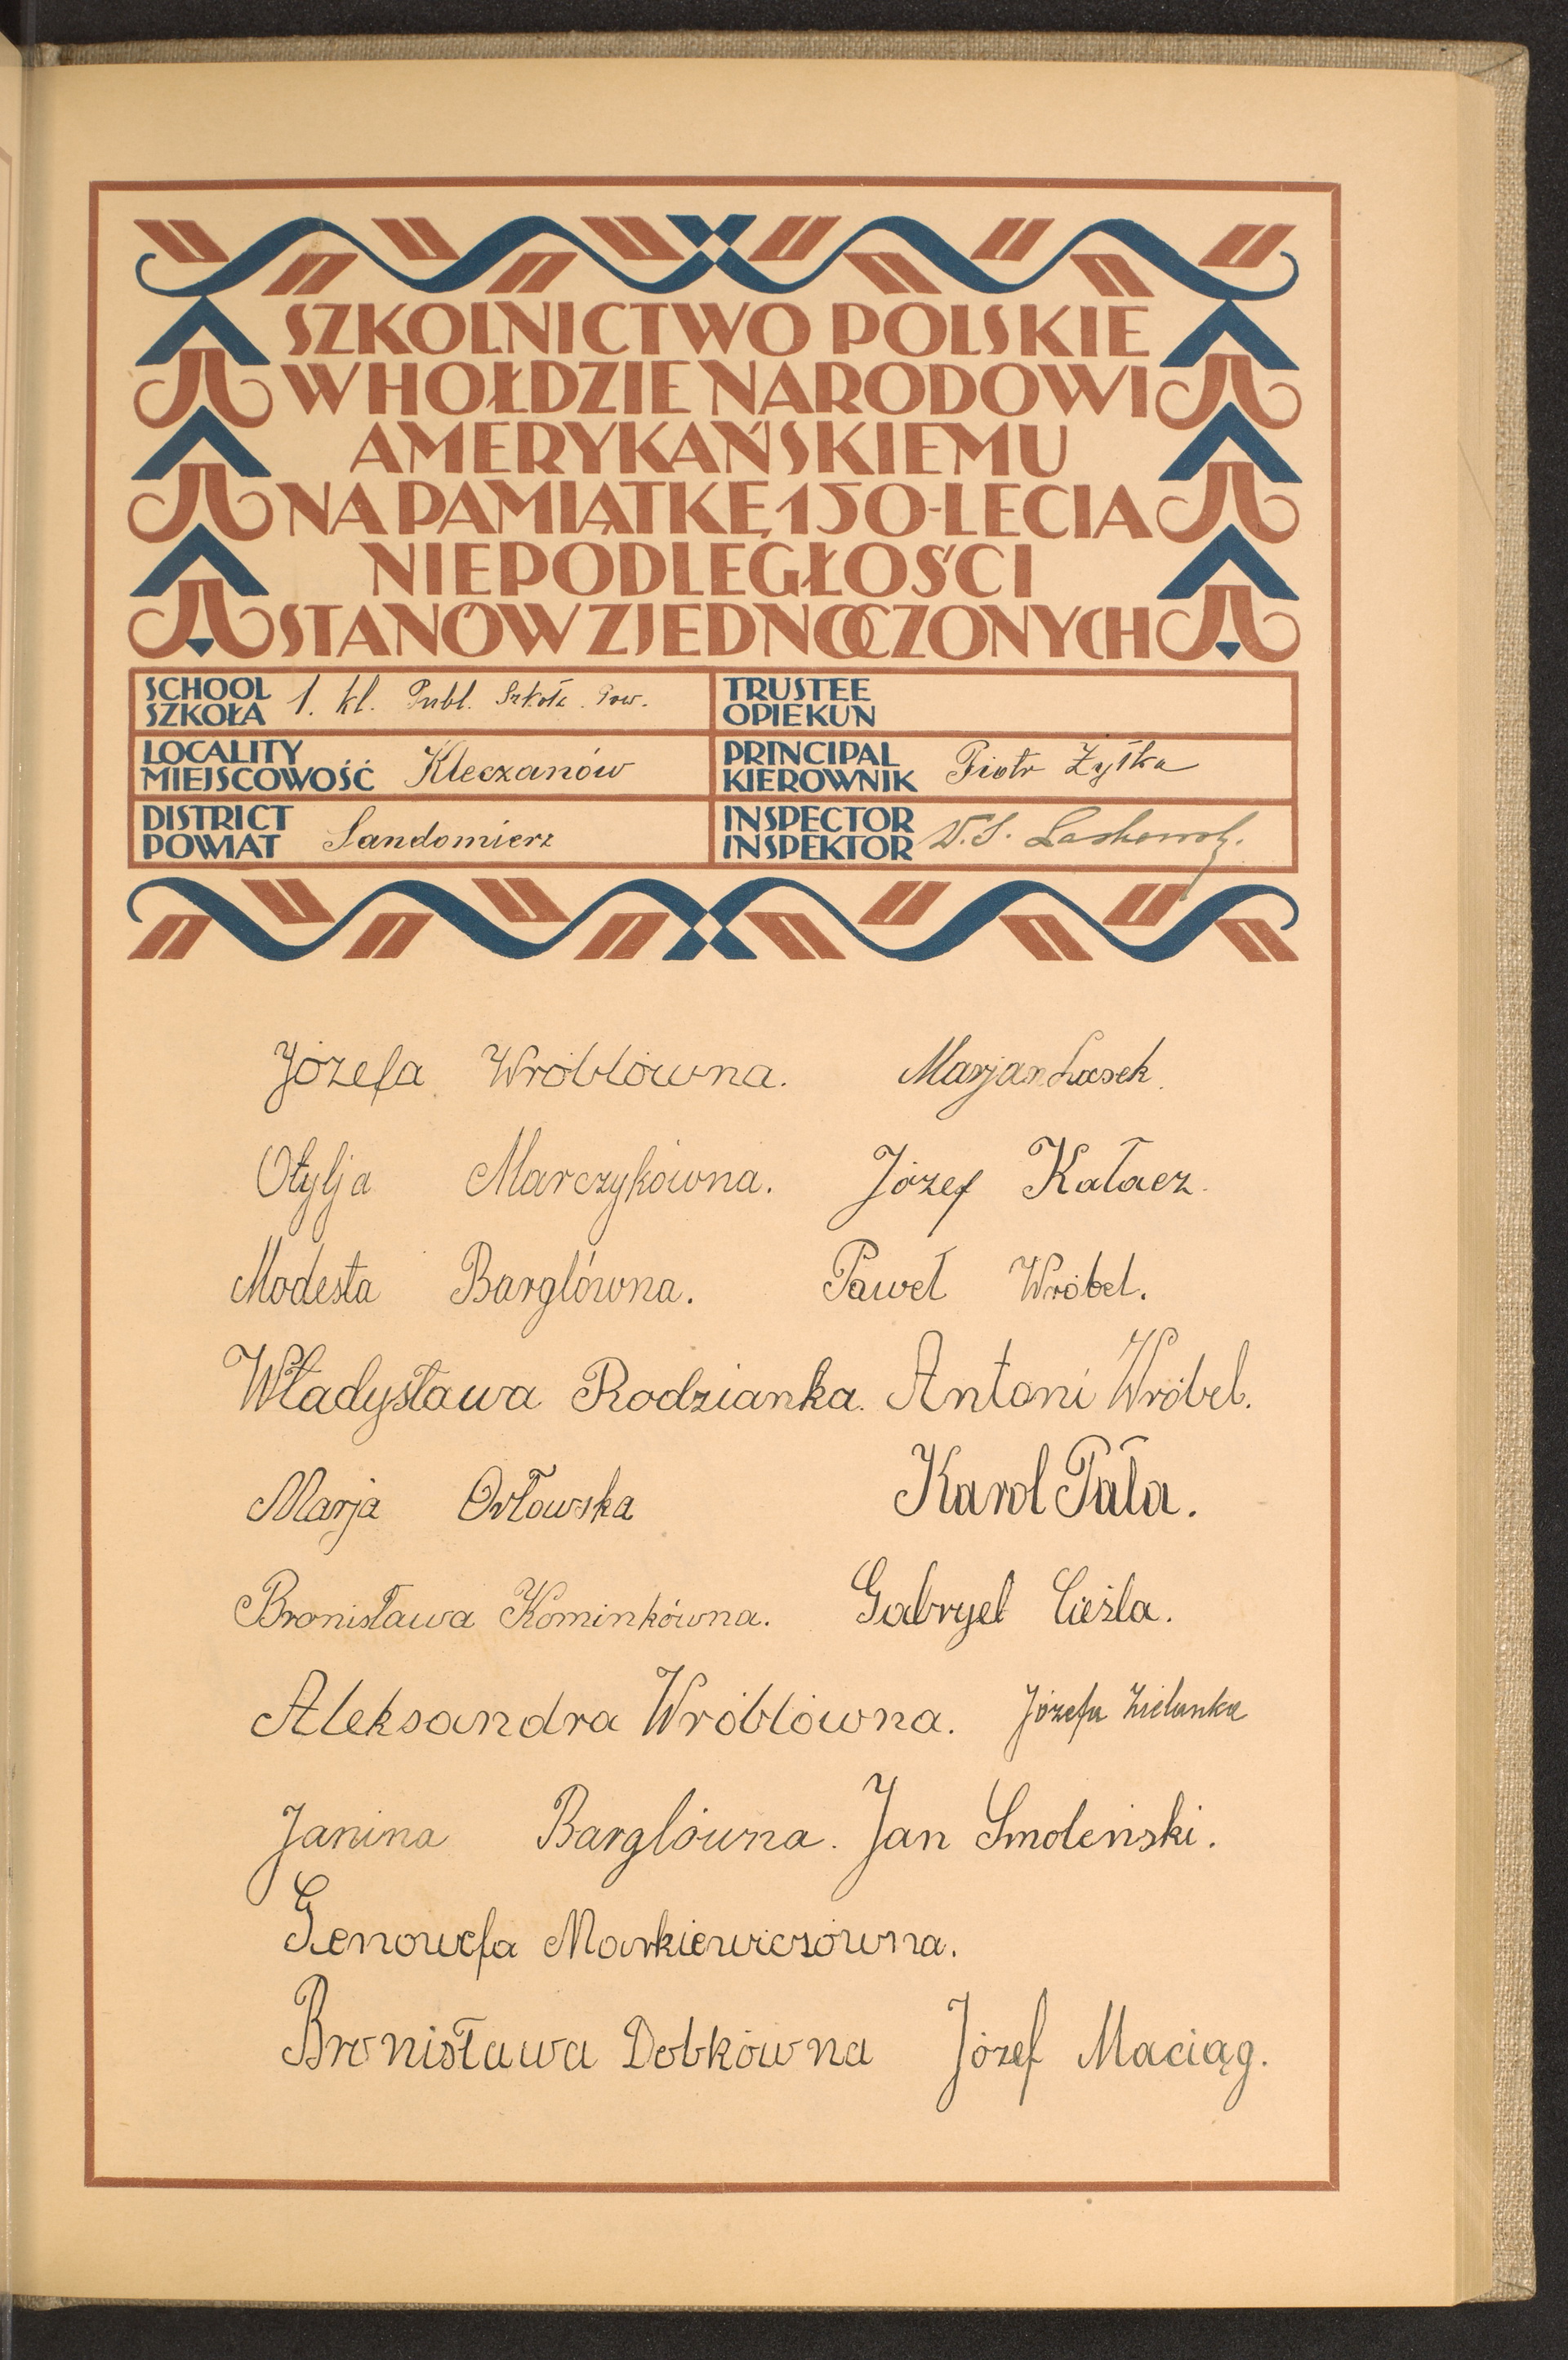 SZKOLNICTWO POLSKIE
W HOŁDZIE NARODOWI
AMERYKAŃSKIEMU
NA PAMIĄTKĘ 150-LECIA
NIEPODLEGŁOŚCI
STANÓW ZJEDNOCZONYCH
SCHOOL SZKOŁA 1. kl. Publ. Szkoła Pow.
TRUSTEE OPIEKUN
LOCALITY MIEJSCOWOŚĆ Kleczanów
PRINCIPAL KIEROWNIK Piotr Żyłka
DISTRICT POWIAT Sandomierz
INSPECTOR INSPEKTOR
Józefa Wróblówna. Marjan Lasek.
Otylja Marczykówna. Józef Kałacz.
Modesta Barglówna. Paweł Wróbel.
Władysława Rodzianka. Antoni Wróbel.
Marja Orłowska Karol Pała.
Bronisława Kominkówna. Gabryel Cieśla.
Aleksandra Wróblówna. Józefa Zielanka
Janina Barglówna. Jan Smoleński.
Genowefa Markiewiczówna.
Bronisława Dobkówna Józef Maciąg.